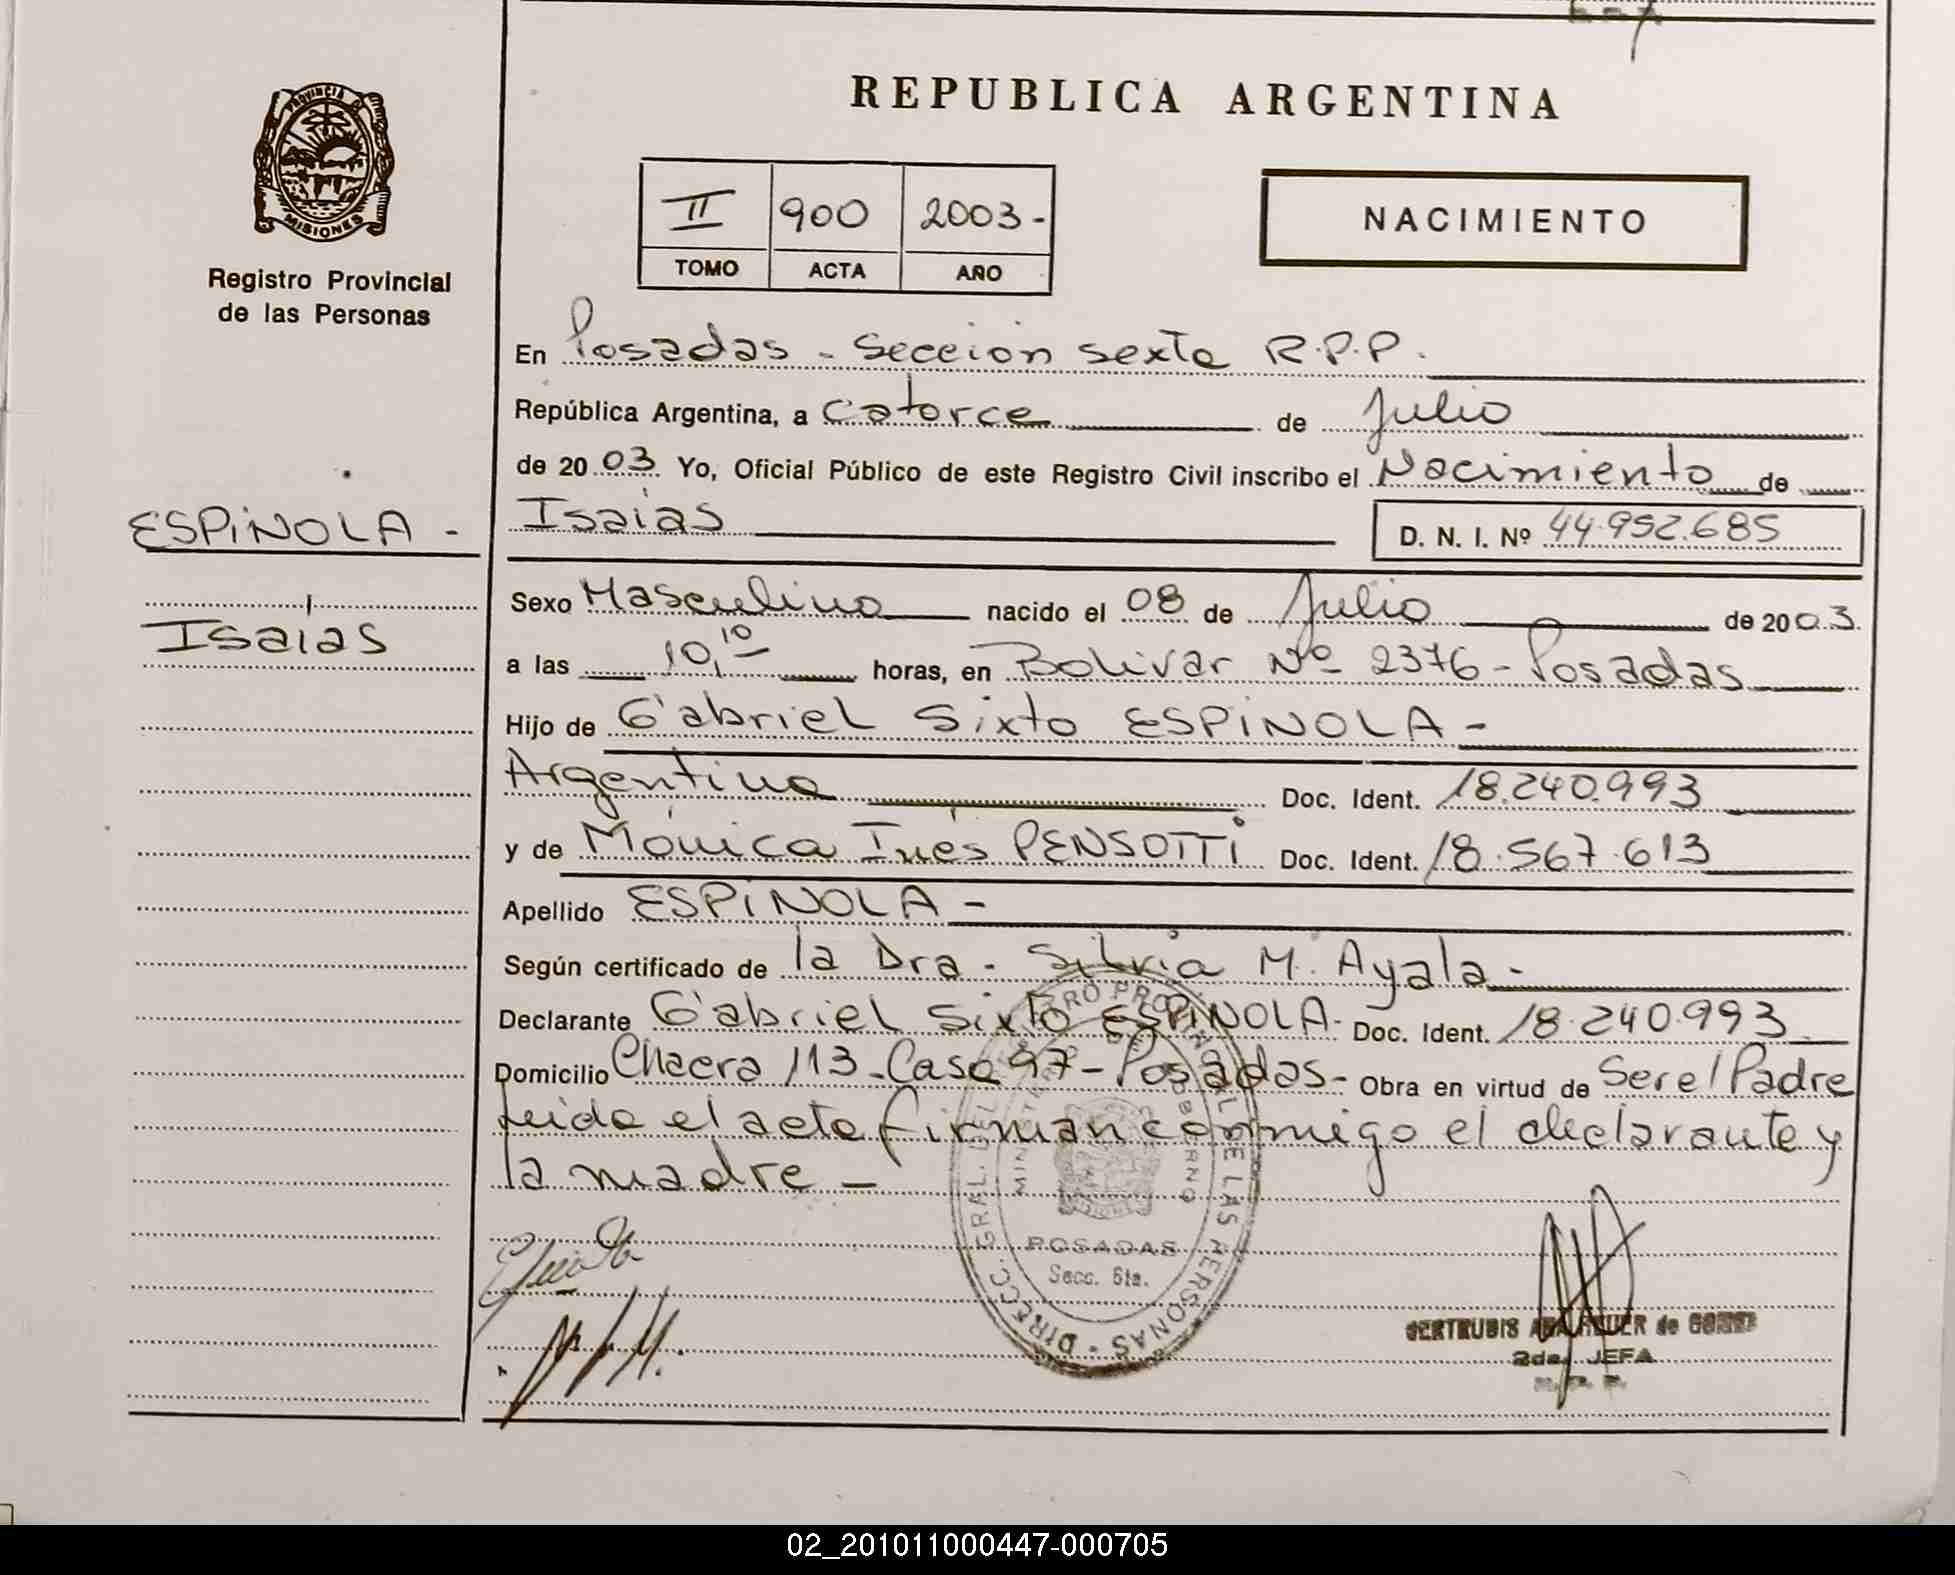 REPUBLICA ARGENTINA
PROVINCIA DE
MISIONES
Registro Provincial
de las Personas
II 900 2003-
TOMO ACTA AÑO
NACIMIENTO
En Posadas - Sección sexta R.P.P.
República Argentina, a catorce de Julio
de 2003 Yo, Oficial Público de este Registro Civil inscribo el Nacimiento de
ESPINOLA -
Isaias
Isaías D. N. I. Nº 44.952.685
Sexo Masculino nacido el 08 de Julio de 2003.
a las 10,10 horas, en Bolivar Nº 2376 - Posadas
Hijo de Gabriel Sixto ESPINOLA -
Argentino Doc. Ident. 18.240.993
y de Mónica Inés PENSOTTI Doc. Ident. 18.567.613
Apellido ESPINOLA -
Según certificado de la Dra. Silvia M. Ayala -
Declarante Gabriel Sixto ESPINOLA - Doc. Ident. 18.240.993
Domicilio Chacra 113 - Casa 97 - Posadas - Obra en virtud de Ser el Padre
leida el acta firman conmigo el declarante y
la madre -
DIRECC. GRAL. DEL REGISTRO PROVINCIAL DE LAS PERSONAS
POSADAS
Secc. 6ta.
GERTRUDIS de
2da. JEFA
02_201011000447-000705